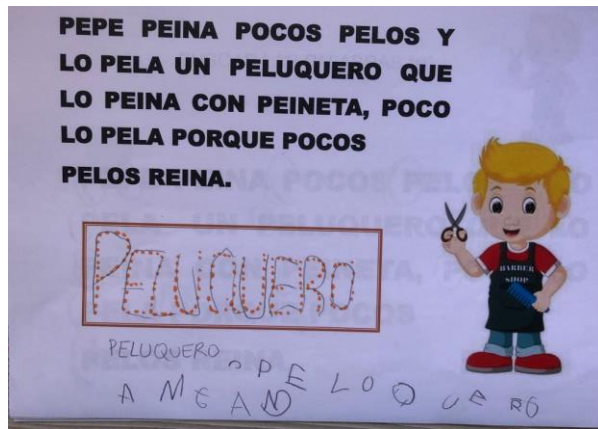 PEPE PEINA POCOS PELOS Y
LO PELA UN PELUQUERO QUE
LO PEINA CON PEINETA, POCO
LO PELA PORQUE POCOS
PELOS REINA.
BARBER
SHOP
PELUQUERO
PELUQUERO
PELOQUERO